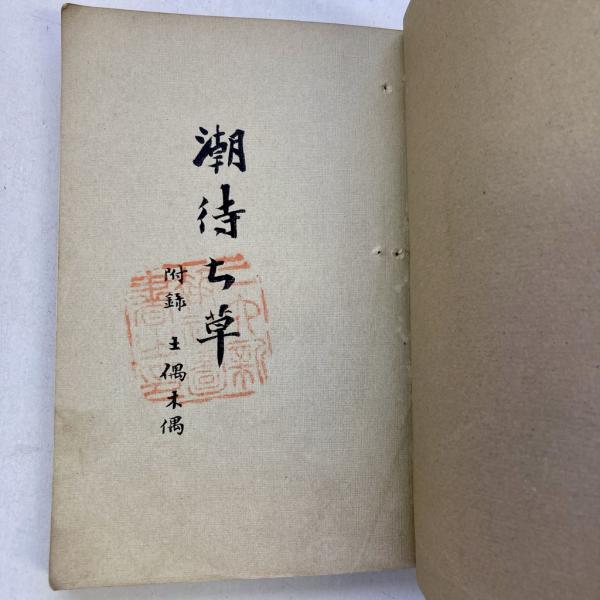 潮待ち草
附録 土偶木偶